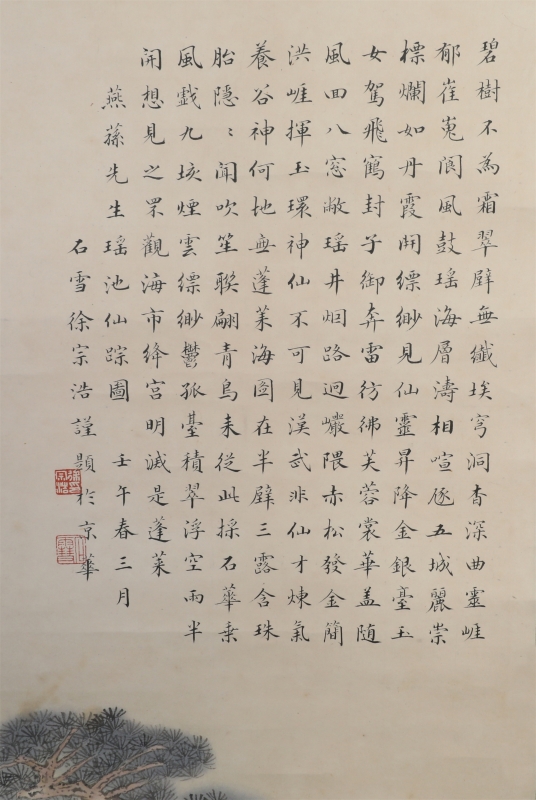 碧樹不為霜翠辟無纖埃穹洞杳深曲靈崕
郁崔嵬閬風鼓瑤海層濤相喧豗五城麗崇
標爛如丹霞開縹緲見仙靈昇降金銀臺玉
女駕飛鶴封子御奔雷彷彿芙蓉裳華盖随
風回八窓敝瑤井烟路迥巖隈赤松發金簡
洪崕揮玉環神仙不可見漢武非仙才煉氣
養谷神何地無蓬莱海圖在半壁三露含珠
胎隱〻聞吹笙聯翩青鳥来從此採石華乗
風戲九垓煙雲縹緲鬱孤臺積翠浮空雨半
開想見之罘觀海市絳宮明滅是蓬莱
燕蓀先生瑤池仙踪圖 壬午春三月
石雪徐宗浩謹題於京華